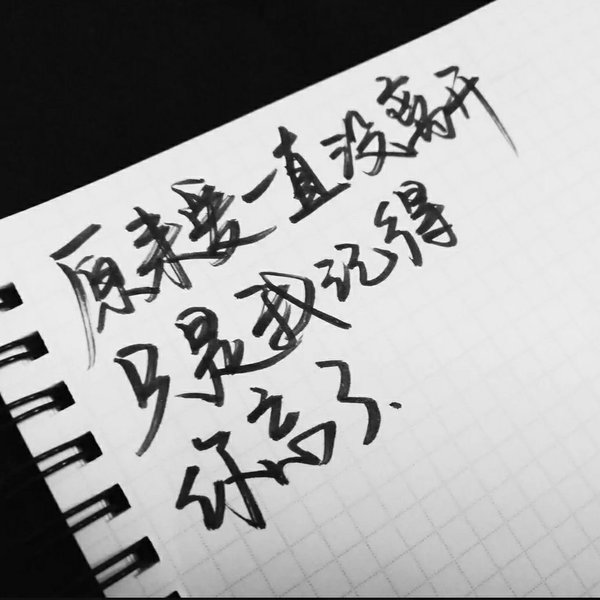 原来爱一直没离开
只是我记得
你高了.